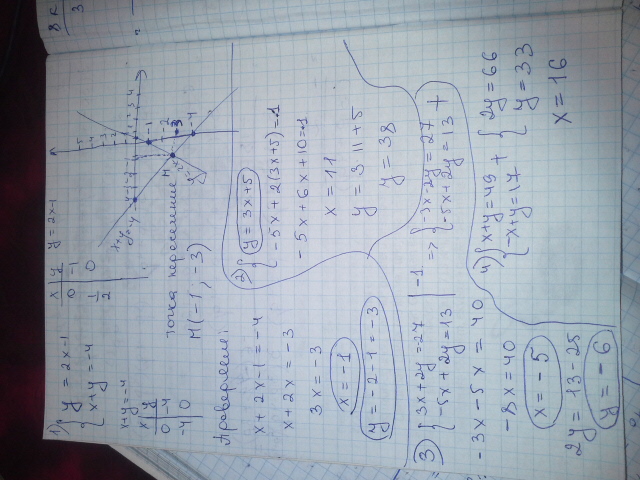 1) { y = 2x-1
x+y = -4
x+y=-4
x | y
0 | -4
-4 | 0
y = 2x-1
x | y
0 | -1
1/2 | 0
точка пересечение
M(-1; -3)
Проверяем:
x + 2x-1 = -4
x + 2x = -3
3x = -3
x = -1
y = -2-1 = -3
2) { y = 3x+5
-5x + 2(3x+5) = 1
-5x + 6x + 10 = 1
x = 11
y = 3 11 + 5
y = 38
3) { 3x + 2y = 27 | -1
-5x + 2y = 13 |
=> { -3x - 2y = 27
-5x + 2y = 13 +
-3x - 5x = 40
-8x = 40
x = -5
2y = 13 - 25
y = -6
4) { x + y = 49
-x + y = 17 +
{ 2y = 66
y = 33
x = 16